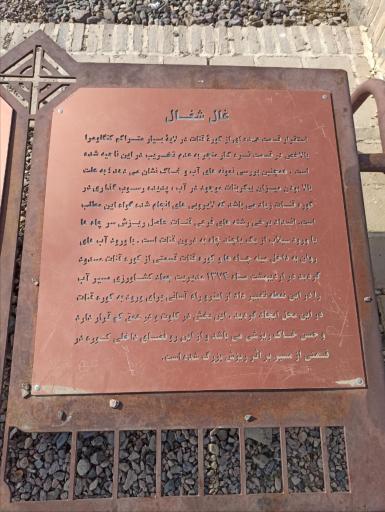 غال شغال
استقرار قسمت عمده ای از کورهٔ قنات در لایهٔ بسیار متراکم کنگلومرا
بالاخص در قسمت تره کار منجر به عدم تخریب در این ناحیه شده
است . همچنین بررسی نمونه های آب و خاک نشان می دهد؛ به علت
بالا بودن میزان بیکربنات موجود در آب ، پدیده رسوب گذاری در
کوره قنات زیاد می باشد که لایروبی های انجام شده گواه این مطلب
است. انسداد برخی رشته های فرعی قنات عامل ریزش سر چاه ها
با ورود سیلاب از یک یا چند چاه به درون قنات است . با ورود آب های
روان به داخل میله چاه ها و کوره قنات قسمتی از کوره قنات مسدود
گردید در اردیبهشت سال ۱۳۷۴ مدیریت جهاد کشاورزی مسیر آب
را در این نقطه تغییر داد از اینرو راه آسانی برای ورود به کوره قنات
در این محل ایجاد گردید . این بخش در کلوت و در عمق کم قرار دارد
و جنس خاک ریزشی می باشد و از این رو فضای داخلی کوره در
قسمتی از مسیر بر اثر ریزش بزرگ شده است.